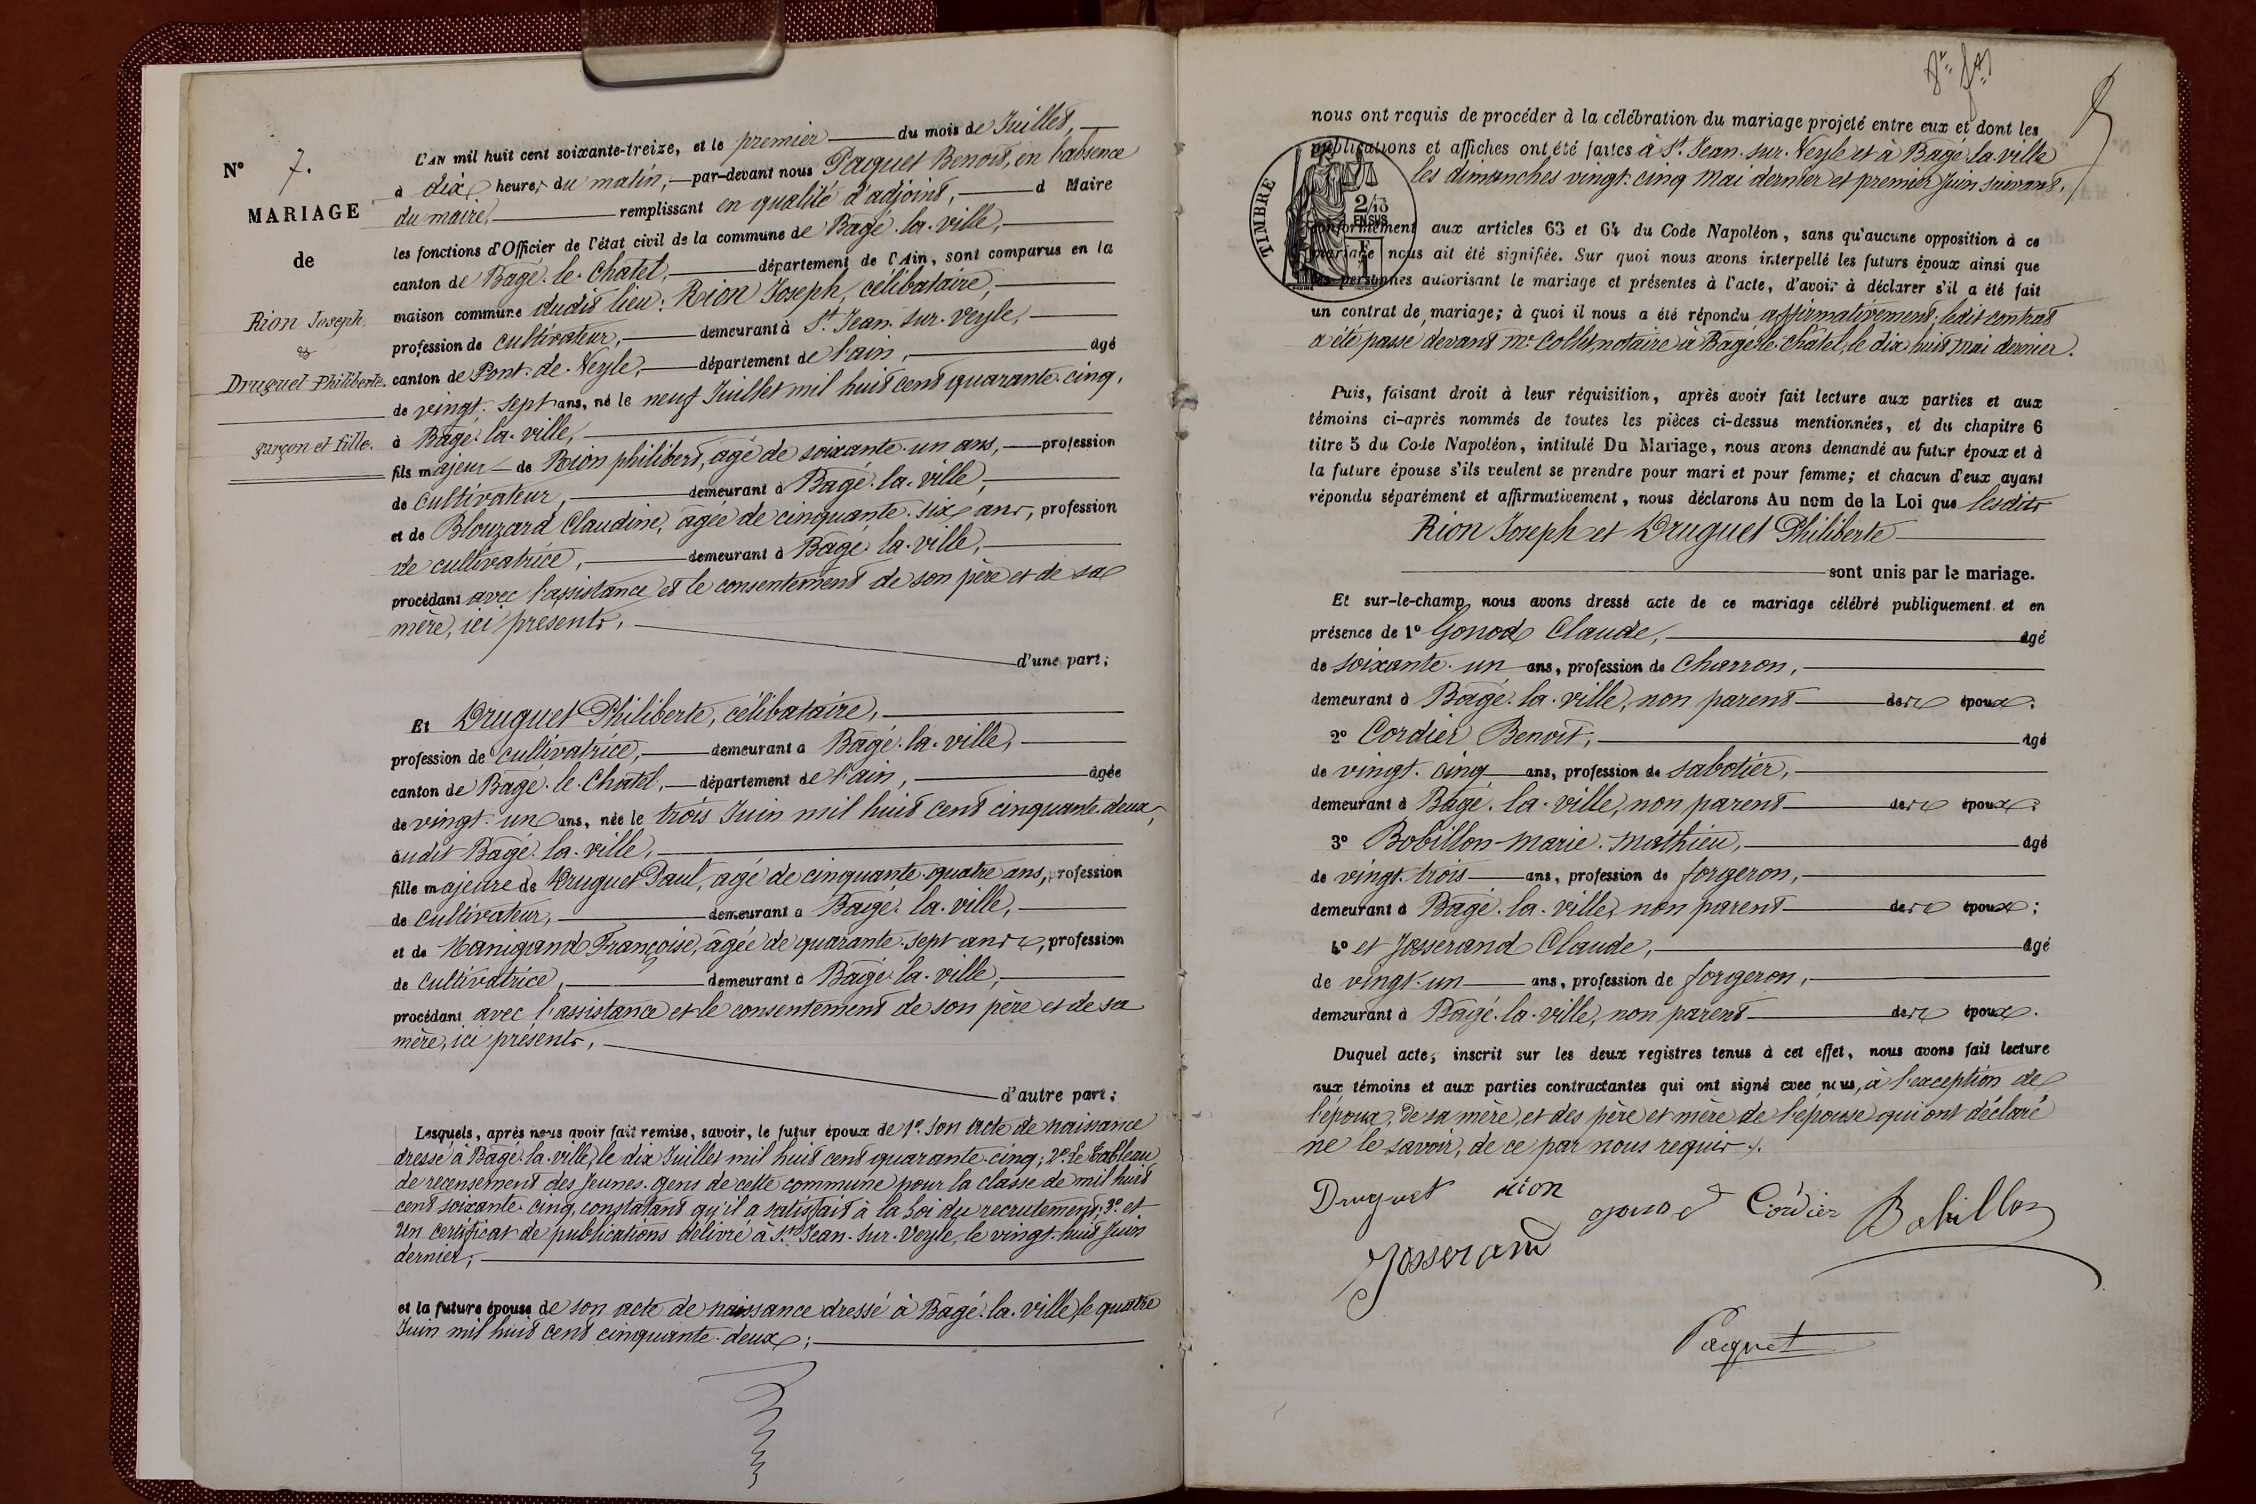 N° 7.
MARIAGE
de
Rion Joseph.
et
Druguet Philiberte.
garçon et fille.
L'AN mil huit cent soixante-treize, et le premier du mois de Juillet,
à dix heures du matin, par-devant nous Paquet Benoit, en l'absence
du maire, remplissant en qualité d'adjoint, d Maire
les fonctions d'Officier de l'état civil de la commune de Bâgé-la-ville,
canton de Bâgé-le-Chatel, département de l'Ain, sont comparus en la
maison commune dudit lieu: Rion Joseph, célibataire,
profession de cultivateur, demeurant à St Jean-sur-Veyle,
canton de Pont-de-Veyle, département de l'ain, agé
de vingt-sept ans, né le neuf Juillet mil huit cent quarante-cinq,
à Bâgé-la-ville,
fils majeur de Rion philibert, âgé de soixante-un ans, profession
de cultivateur, demeurant à Bâgé-la-ville,
et de Blouzard Claudine, âgée de cinquante-six ans, profession
de cultivatrice, demeurant à Bâgé-la-ville,
procédant avec l'assistance et le consentement de son père et de sa
mère, ici présents,
d'une part;
Et Druguet Philiberte, célibataire,
profession de cultivatrice, demeurant à Bâgé-la-ville,
canton de Bâgé-le-Chatel, département de l'ain, âgée
de vingt-un ans, née le trois Juin mil huit cent cinquante-deux,
audit Bâgé-la-ville,
fille majeure de Druguet Paul, âgé de cinquante-quatre ans, profession
de cultivateur, demeurant à Bâgé-la-ville,
et de Manigand Françoise, âgée de quarante-sept ans, profession
de cultivatrice, demeurant à Bâgé-la-ville,
procédant avec l'assistance et le consentement de son père et de sa
mère, ici présents,
d'autre part;
Lesquels, après nous avoir fait remise, savoir, le futur époux de 1° son acte de naissance
dressé à Bâgé-la-ville, le dix Juillet mil huit cent quarante-cinq; 2° Le tableau
de recensement des Jeunes-gens de cette commune pour la classe de mil huit
cent soixante-cinq, constatant qu'il a satisfait à la Loi du recrutement; 3° et
un certificat de publications délivré à St Jean-sur-Veyle, le vingt-huit Juin
dernier;
et la future épouse de son acte de naissance dressé à Bâgé-la-ville, le quatre
Juin mil huit cent cinquante-deux;
nous ont requis de procéder à la célébration du mariage projeté entre eux et dont les
publications et affiches ont été faites à St Jean-sur-Veyle et à Bâgé-la-ville
les dimanches vingt-cinq Mai dernier et premier Juin suivant.
TIMBRE
2/10
EN SUS
conformément aux articles 63 et 64 du Code Napoléon, sans qu'aucune opposition à ce
mariage nous ait été signifiée. Sur quoi nous avons interpellé les futurs époux ainsi que
les personnes autorisant le mariage et présentes à l'acte, d'avoir à déclarer s'il a été fait
un contrat de mariage; à quoi il nous a été répondu affirmativement, ledit contrat
a été passé devant Me Collet, notaire à Bâgé-le-Châtel, le dix huit Mai dernier.
Puis, faisant droit à leur réquisition, après avoir fait lecture aux parties et aux
témoins ci-après nommés de toutes les pièces ci-dessus mentionnées, et du chapitre 6
titre 5 du Code Napoléon, intitulé Du Mariage, nous avons demandé au futur époux et à
la future épouse s'ils veulent se prendre pour mari et pour femme; et chacun d'eux ayant
répondu séparément et affirmativement, nous déclarons Au nom de la Loi que lesdits
Rion Joseph et Druguet Philiberte
sont unis par le mariage.
Et sur-le-champ nous avons dressé acte de ce mariage célébré publiquement et en
présence de 1° Gonod Claude, agé
de soixante-un ans, profession de Charron,
demeurant à Bâgé-la-ville, non parent des époux;
2° Cordier Benoit, agé
de vingt-cinq ans, profession de sabotier,
demeurant à Bâgé-la-ville, non parent des époux;
3° Bobillon-Marie-Mathieu, agé
de vingt-trois ans, profession de forgeron,
demeurant à Bâgé-la-ville, non parent des époux;
4° et Josserand Claude, agé
de vingt-un ans, profession de forgeron,
demeurant à Bâgé-la-ville, non parent des époux.
Duquel acte, inscrit sur les deux registres tenus à cet effet, nous avons fait lecture
aux témoins et aux parties contractantes qui ont signé avec nous, à l'exception de
l'époux, de sa mère, et des père et mère de l'épouse qui ont déclaré
ne le savoir, de ce par nous requis.
Druguet rion gonod Cordier Bobillon
Josserand
Paquet